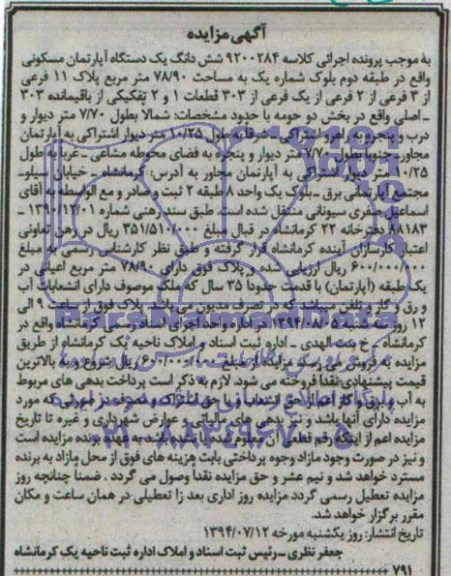 آگهی مزایده
به موجب پرونده اجرائی کلاسه ۹۲۰۰۲۸۴ شش دانگ یک دستگاه آپارتمان مسکونی
واقع در طبقه دوم بلوک شماره یک به مساحت ۷۸/۹۰ متر مربع پلاک ۱۱ فرعی
از ۳ فرعی از ۲ فرعی از یک فرعی از ۳۰۳ قطعات ۱ و ۲ تفکیکی از باقیمانده ۳۰۳
ـ اصلی واقع در بخش دو حومه با حدود مشخصات: شمالا بطول ۷/۷۰ متر دیوار و
درب و پنجره به راهرو اشتراکی ـ شرقا به طول ۱۰/۲۵ متر دیوار اشتراکی به آپارتمان
مجاور ـ جنوبا بطول ۷/۷۰ متر دیوار و پنجره به فضای محوطه مشاعی ـ غربا به طول
۱۰/۲۵ متر دیوار اشتراکی به آپارتمان مجاور به آدرس: کرمانشاه ـ خیابان سیلو ـ
مجتمع آپارتمانی برق ـ بلوک یک واحد ۸ طبقه ۲ ثبت و صادر و مع الواسطه به آقای
اسماعیل صفری سیوانی منتقل شده است. طبق سند رهنی شماره ۱۳۹۰/۱۲/۰۱ ـ
۸۸۱۸۳ دفترخانه ۲۲ کرمانشاه در قبال مبلغ ۳۵۱/۵۱۰/۰۰۰ ریال در رهن تعاونی
اعتبار کارسازان آینده کرمانشاه قرار گرفته و طبق نظر کارشناس رسمی به مبلغ
۶۰۰/۰۰۰/۰۰۰ ریال ارزیابی شده و پلاک فوق دارای ۷۸/۹۰ متر مربع اعیانی در
یک طبقه (آپارتمان) با قدمت حدودا ۳۵ سال که ملک موصوف دارای انشعابات آب
و برق و گاز و تلفن میباشد که در تصرف مدیون می باشد. پلاک فوق از ساعت ۹ الی
۱۲ روز سه شنبه ۱۳۹۴/۰۸/۰۵ در اداره واحد اجرای اسناد رسمی کرمانشاه واقع در
کرمانشاه ـ خ بنت الهدی ـ اداره ثبت اسناد و املاک ناحیه یک کرمانشاه از طریق
مزایده به فروش می رسد. مزایده از مبلغ ۶۰۰/۰۰۰/۰۰۰ ریال شروع و به بالاترین
قیمت پیشنهادی نقدا فروخته می شود. لازم به ذکر است پرداخت بدهی های مربوط
به آب و برق و گاز اعم از حق انشعاب و یا حق اشتراک و مصرف در صورتی که مورد
مزایده دارای آنها باشد و نیز بدهی های مالیاتی و عوارض شهرداری و غیره تا تاریخ
مزایده اعم از اینکه رقم قطعی آن معلوم شده یا نشده باشد به عهده برنده مزایده است
و نیز در صورت وجود مازاد وجوه پرداختی بابت هزینه های فوق از محل مازاد به برنده
مسترد خواهد شد و نیم عشر و حق مزایده نقدا وصول می گردد. ضمنا چنانچه روز
مزایده تعطیل رسمی گردد مزایده روز اداری بعد از تعطیلی در همان ساعت و مکان
مقرر برگزار خواهد شد.
تاریخ انتشار: روز یکشنبه مورخه ۱۳۹۴/۰۷/۱۲
جعفر نظری ـ رئیس ثبت اسناد و املاک اداره ثبت ناحیه یک کرمانشاه
۷۹۱
ParsNamadData